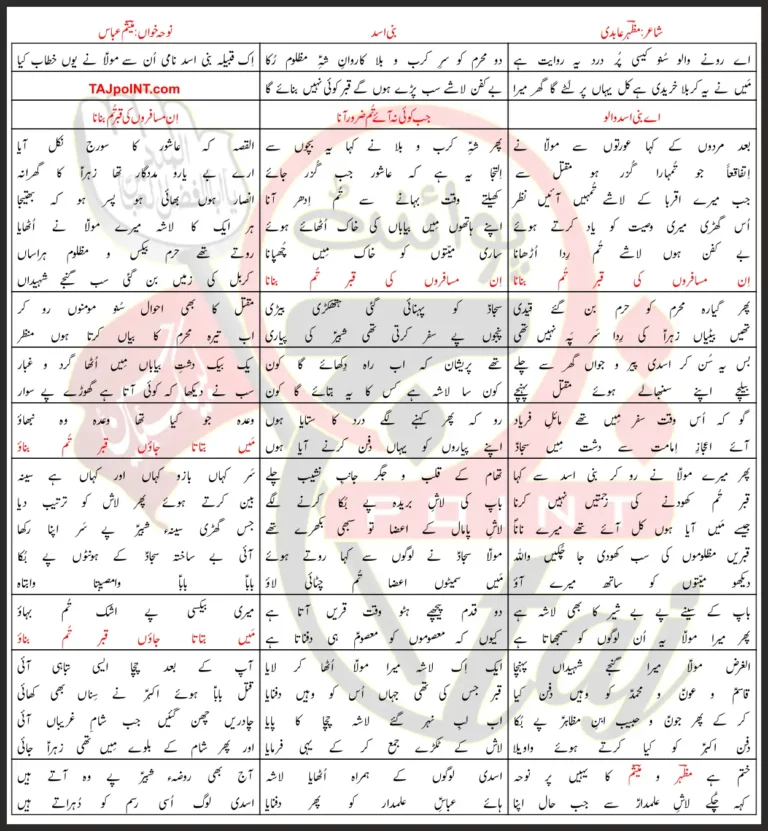 شاعر: مظہر عابدی
بنی اسد
نوحہ خواں: میثم عباس
اے رونے والو سُنو کیسی پُر درد یہ روایت ہے
دو محرم کو سرِ کرب و بلا کاروانِ شہِ مظلوم رُکا
اِک قبیلہ بنی اسد نامی اُن سے مولاؑ نے یوں خطاب کیا
مَیں نے یہ کربلا خریدی ہے کل یہاں پر لٹے گا گھر میرا
بے کفن لاشے سب پڑے ہوں گے قبر کوئی نہیں بنائے گا
TAJpoiNT.com
اے بنی اسد والو
جب کوئی نہ آئے تُم ضرور آنا
اِن مسافروں کی قبر تُم بنانا
بعد مردوں کے کہا عورتوں سے مولاؑ نے
اِتفاقعاً جو تُمہارا گزر ہو مقتل سے
جب میرے اقربا کے لاشے تُمہیں آئیں نظر
اُس گھڑی میری وصیت کو یاد کرتے ہوئے
بے کفن ہوں لاشے تُم رِدا اُڑھانا
اِن مسافروں کی قبر تُم بنانا
پھر شہِ کرب و بلا نے کہا یہ بچوں سے
اِلتجا یہ ہے کہ عاشور جب گزر جائے
کھیلتے وقت بہانے سے تُم اِدھر آنا
اپنے ہاتھوں میں بیاباں کی خاک اُٹھائے ہوئے
ساری میّتوں کو خاک میں چُھپانا
اِن مسافروں کی قبر تُم بنانا
القصہ کہ عاشور کا سورج نکل آیا
ارے بے یارو مددگار تھا زہراؑ کا گھرانہ
انصار ہوں بھائی ہو پسر ہو کہ بھتیجا
ہر ایک کا لاشہ میرے مولاؑ نے اُٹھایا
روتے تھے حرم بیکس و مظلوم ہراساں
کربل کی زمیں بن گئی سب گنجِ شہیداں
پھر گیارہ محرم کو حرم بن گئے قیدی
تھیں بیٹیاں زہراؑ کی رِدا سَر پہ نہیں تھی
سجادؑ کو پہنائی گئی ہتھکڑی بیڑی
بچوں پے سفر کرتی تھی شبیرؑ کی پیاری
مقتل کا بھی احوال سُنو مومنوں رو کر
اب تیرہ محرم کا بیاں کرتا ہوں منظر
بس یہ سُن کر اسدی پیر و جواں گھر سے چلے
بیلچے اپنے سنبھالے ہوئے مقتل پہنچے
تھے پریشاں کہ اب راہ دِکھائے گا کون
کون سا لاشہ ہے کس کا یہ بتائے گا کون
یک بیک دشتِ بیاباں میں اُٹھا گرد و غبار
سب نے دیکھا کہ کوئی آتا ہے گھوڑے پے سوار
گو کہ اُس وقت سفر میں تھے مائلِ فریاد
آئے اعجازِ اِمامت سے دشت میں سجادؑ
رو کہ پھر کہنے لگے درد کا ستایا ہوں
اپنے پیاروں کو یہاں دفن کرنے آیا ہوں
وعدہ جو کیا تھا وعدہ وہ نبھاؤ
مَیں بتاتا جاؤں قبر تُم بناؤ
پھر میرے مولاؑ نے رو کر بنی اسد سے کہا
قبر تُم کھودنے کی زحمتیں نہیں کرنا
جیسے میں آیا ہوں کل آئے تھے میرے ناناؐ
قبریں مظلوموں کی سب کھودی جا چُکیں واللہ
دیکھو میّتوں کو ساتھ میرے آؤ
تھام کے قلب و جگر جانبِ نشیب چلے
باپ کی لاشِ بریدہ پے بُکا کرنے لگے
لاشِ پامال کے اعضا تو سبھی بکھرے تھے
مولا سجادؑ نے لوگوں سے کہا روتے ہوئے
مَیں سمیٹوں اعضا تُم چٹائی لاؤ
سَر کہاں بازو کہاں اور کہاں ہے سینہ
بین کرتے ہوئے پھر لاش کو ترتیب دیا
جس گھڑی سینہءِ شبیرؑ پے سَر اپنا رکھا
آئی بے ساختہ سجادؑ کے ہونٹوں پے بُکا
باباؑ باباؑ وامصیبتا وابتاہ
باپ کے سینے پے بے شیر کا بھی لاشہ ہے
پھر میرا مولاؑ یہ اُن لوگوں کو سمجھاتا ہے
دو قدم پیچھے ہٹو وقت قریں آتا ہے
کیوں کہ معصوموں کو معصومؑ ہی دفناتا ہے
میری بیکسی پے اشک تُم بہاؤ
مَیں بتاتا جاؤں قبر تُم بناؤ
الغرض مولاؑ میرا گنجِ شہیداں پہنچا
قاسمؑ و عونؑ و محمدؑ کو وہیں دفن کیا
کر کے پھر جونؑ و حبیب ابنِ مظاہرؑ پے بُکا
دفن اکبرؑ کو کیا کرتے ہوئے واویلا
ایک اِک لاشہ میرا مولاؑ اُٹھا کر لایا
قبر جس کی تھی جہاں اُس کو وہیں دفنایا
اب لبِ نہر گئے لاشہ چچا کا پایا
لاش کے ٹکڑے جمع کر کے یہی فرمایا
آپ کے بعد چچا ایسی تباہی آئی
قتل باباؑ ہوئے اکبرؑ نے سِناں بھی کھائی
چادریں چھن گئیں جب شامِ غریباں آئی
اور پھر شام کے بلوے میں تھی زہراؑ جائی
ختم ہے مظہرؔ و میثمؔ کا یہیں پر نوحہ
کہہ چُکے لاشِ علمدارؑ سے جب حال اپنا
اسدی لوگوں کے ہمراہ اُٹھایا لاشہ
ہائے عباسِؑ علمدار کو پھر دفنایا
آج بھی روضہءِ شبیرؑ پے وہ آتے ہیں
اسدی لوگ اُسی رسم کو دُہراتے ہیں